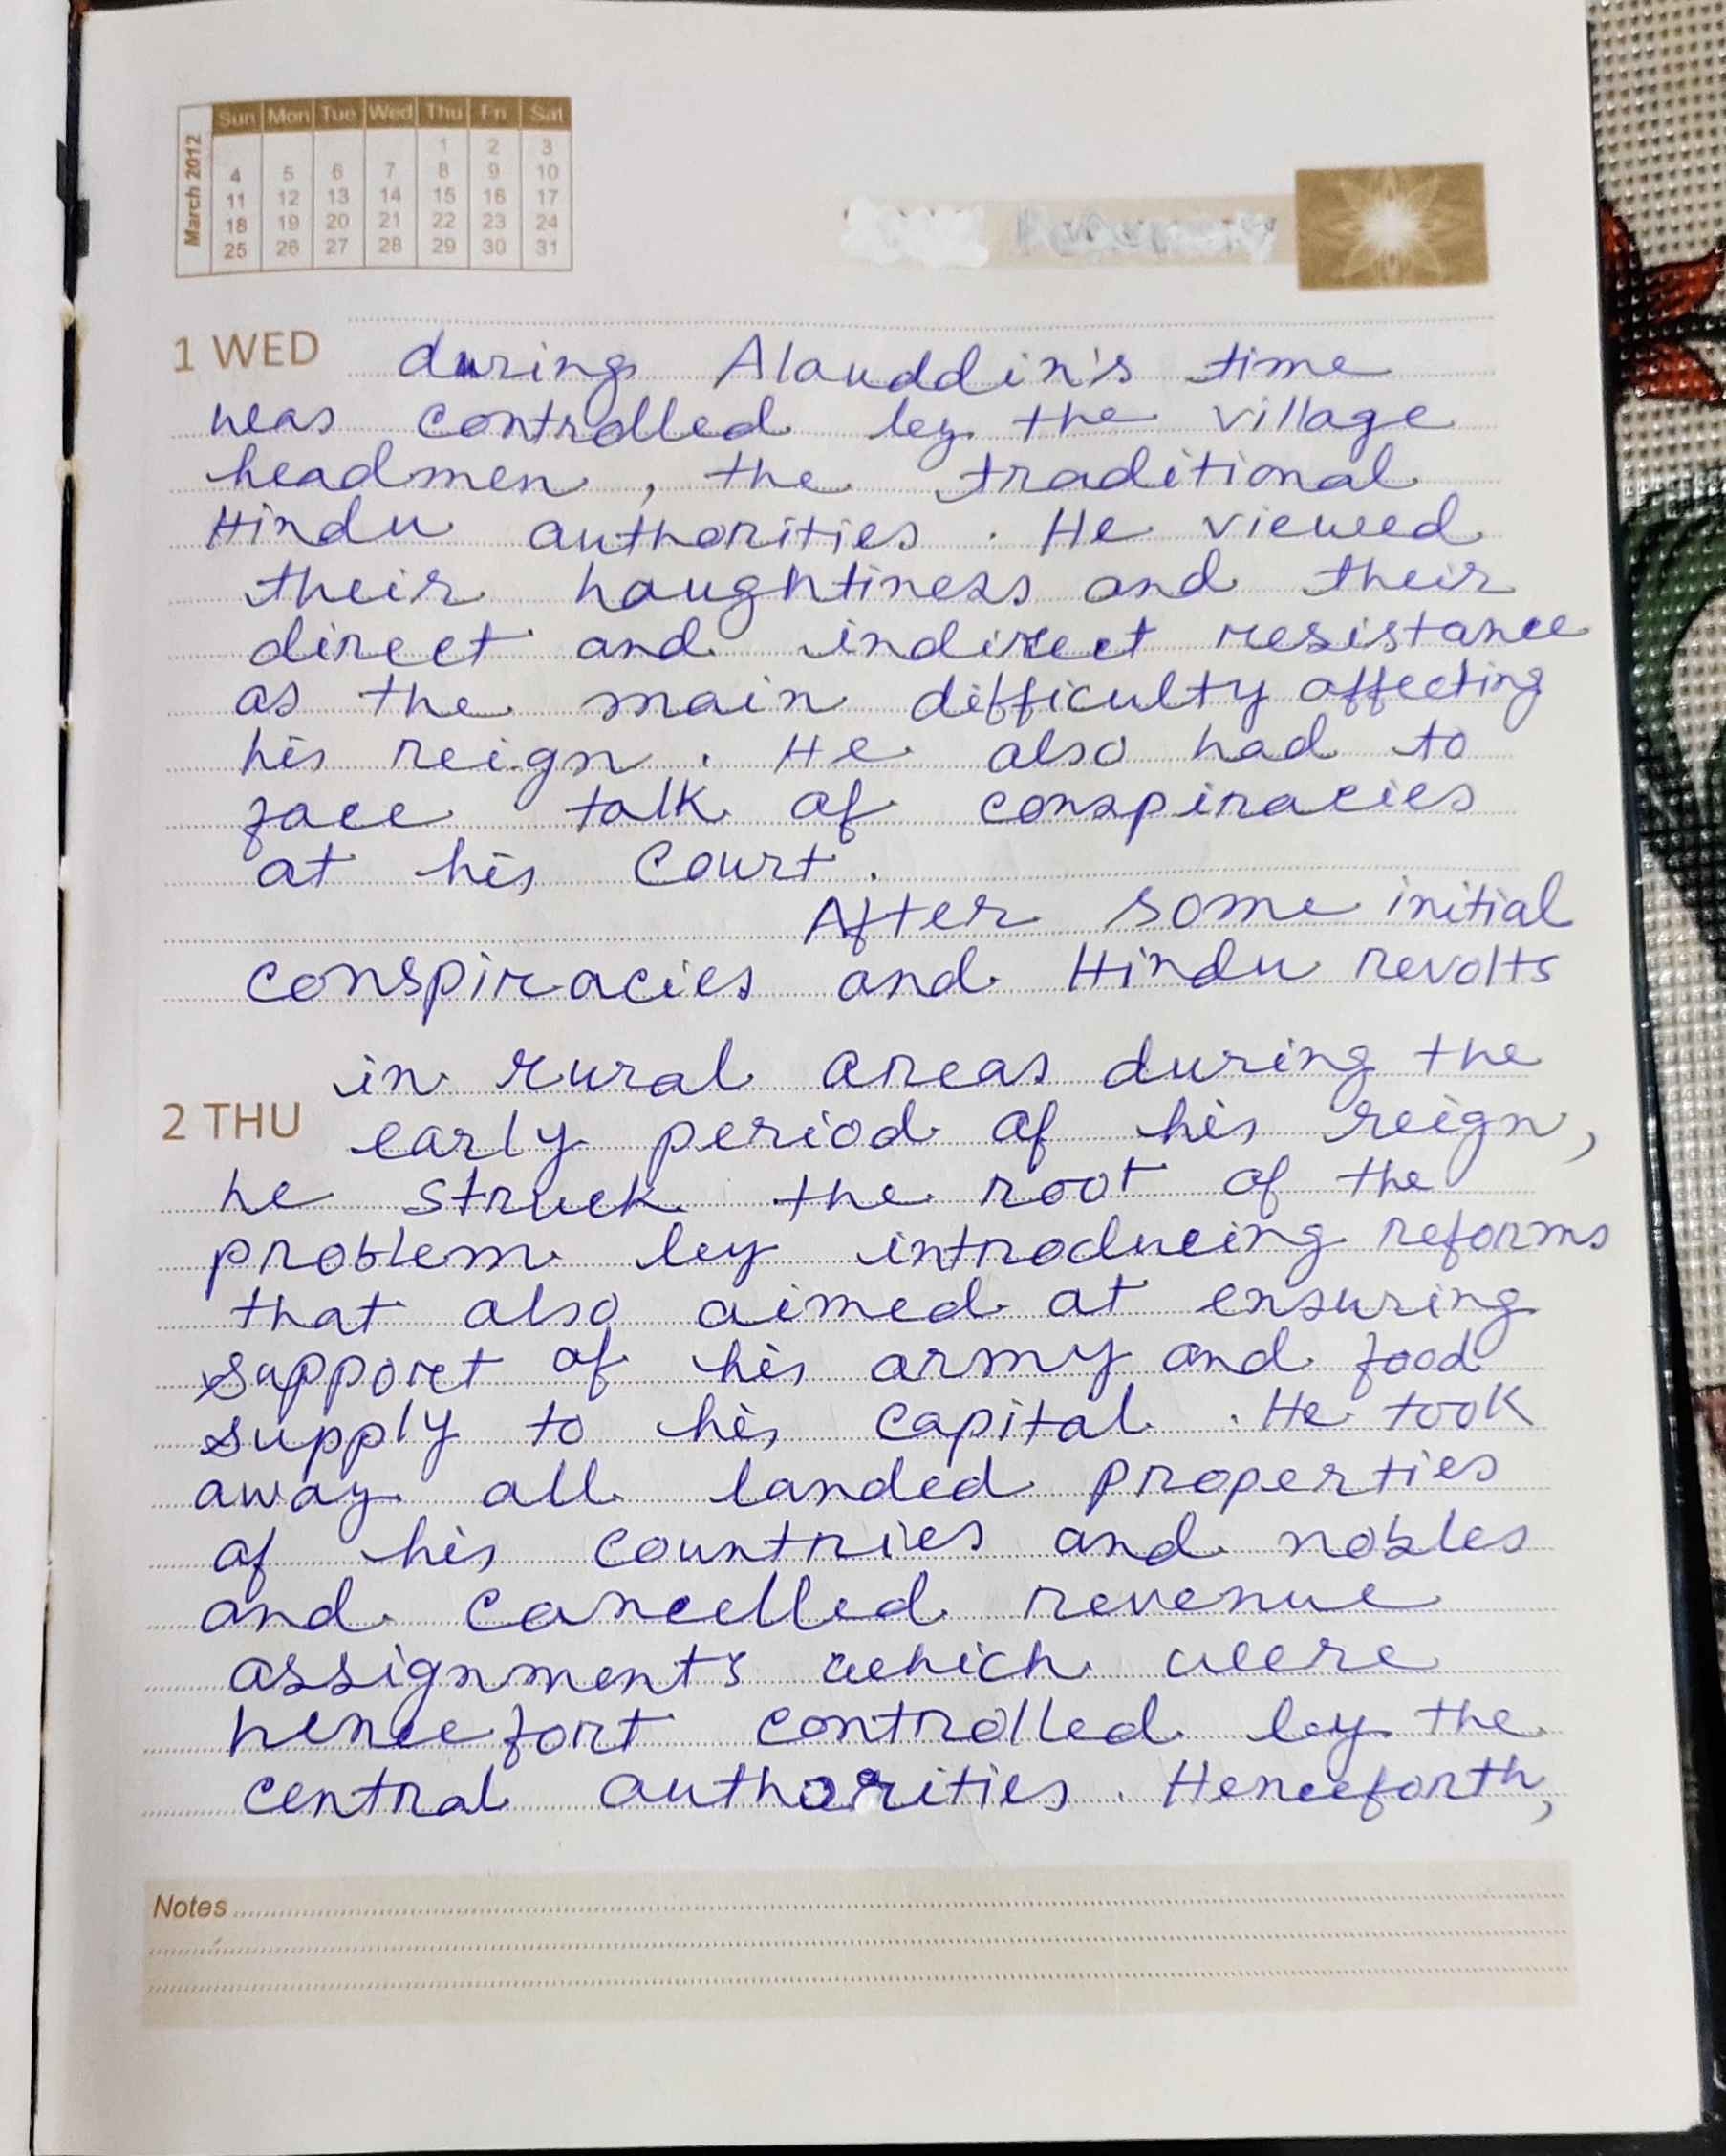 March 2012
Sun Mon Tue Wed Thu Fri Sat
1 2 3
4 5 6 7 8 9 10
11 12 13 14 15 16 17
18 19 20 21 22 23 24
25 26 27 28 29 30 31
1 WED
during Alauddin's time
was controlled by the village
headmen, the traditional
Hindu authorities. He viewed
their haughtiness and their
direct and indirect resistance
as the main difficulty affecting
his reign. He also had to
face talk of conspiracies
at his court.
After some initial
conspiracies and Hindu revolts
in rural areas during the
2 THU
early period of his reign,
he struck the root of the
problem by introducing reforms
that also aimed at ensuring
support of his army and food
supply to his capital. He took
away all landed properties
of his countries and nobles
and cancelled revenue
assignments which were
hencefort controlled by the
central authorities. Henceforth,
Notes